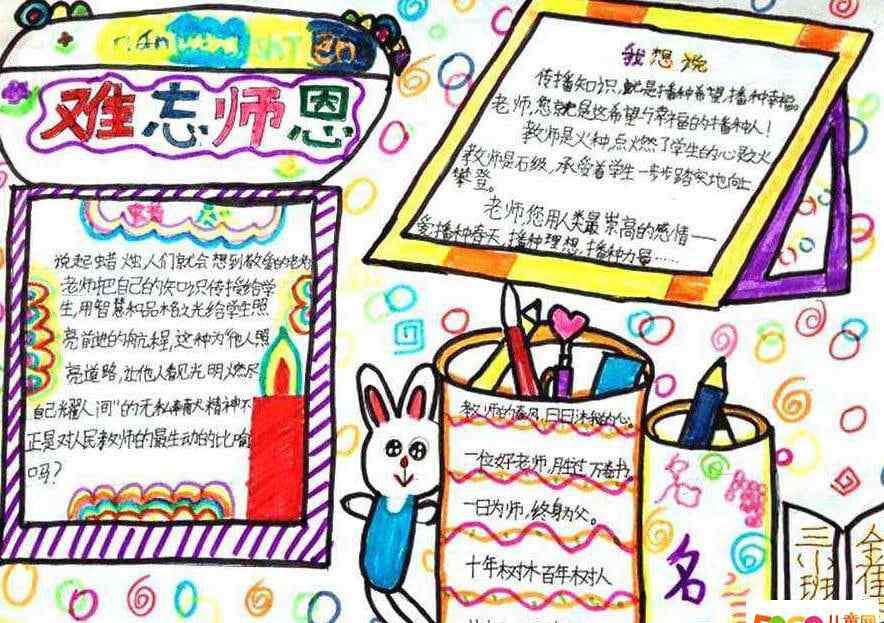 nan wang shi en
难忘师恩
我想说
传播知识,就是播种希望,播种幸福。
老师,您就是这希望与幸福的播种人!
教师是火种,点燃了学生的心灵之火
教师是石级,承受着学生一步步踏实地向上
攀登。
老师您用人类最崇高的感情——
爱播种春天,播种理想,播种力量……
说起蜡烛,人们就会想到敬爱的老师
老师把自己的知识传播给学
生,用智慧和品格之光给学生照
亮前进的航程,这种为"他人照
亮道路,让他人看见光明,燃尽
自己耀人间"的无私奉献精神不
正是对人民教师的最生动的比喻
吗?
教师的春风,日日沐我的心。
一位好老师,胜过万卷书。
一日为师,终身为父。
十年树木百年树人
名
三小班
儿童网